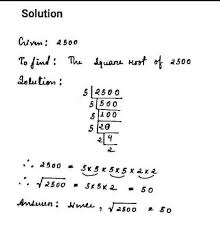 Solution
Given: 2500
To find: The square root of 2500
Solution:
5 2500
5 500
5 100
5 20
2 4
2
∴ 2500 = 5×5×5×5×2×2
∴ √2500 = 5×5×2 = 50
Answer: Hence, √2500 = 50